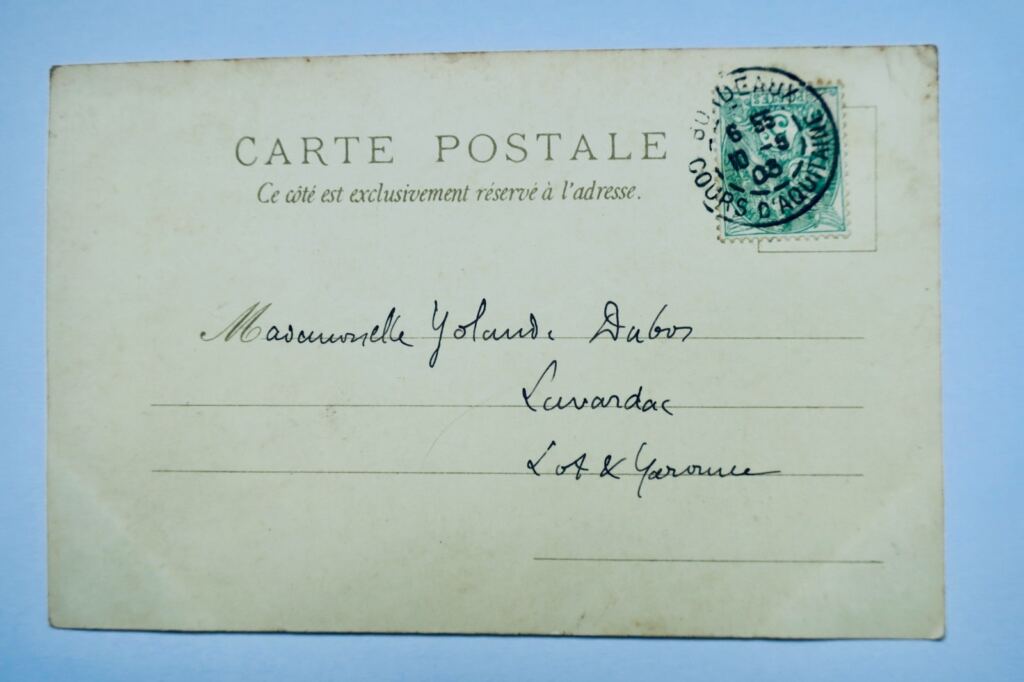 CARTE POSTALE
Ce côté est exclusivement réservé à l'adresse.
BORDEAUX
6 55
10 -9
03
COURS D'AQUITAINE
Mademoiselle Yolande Dubos
Lavardac
Lot & Garonne